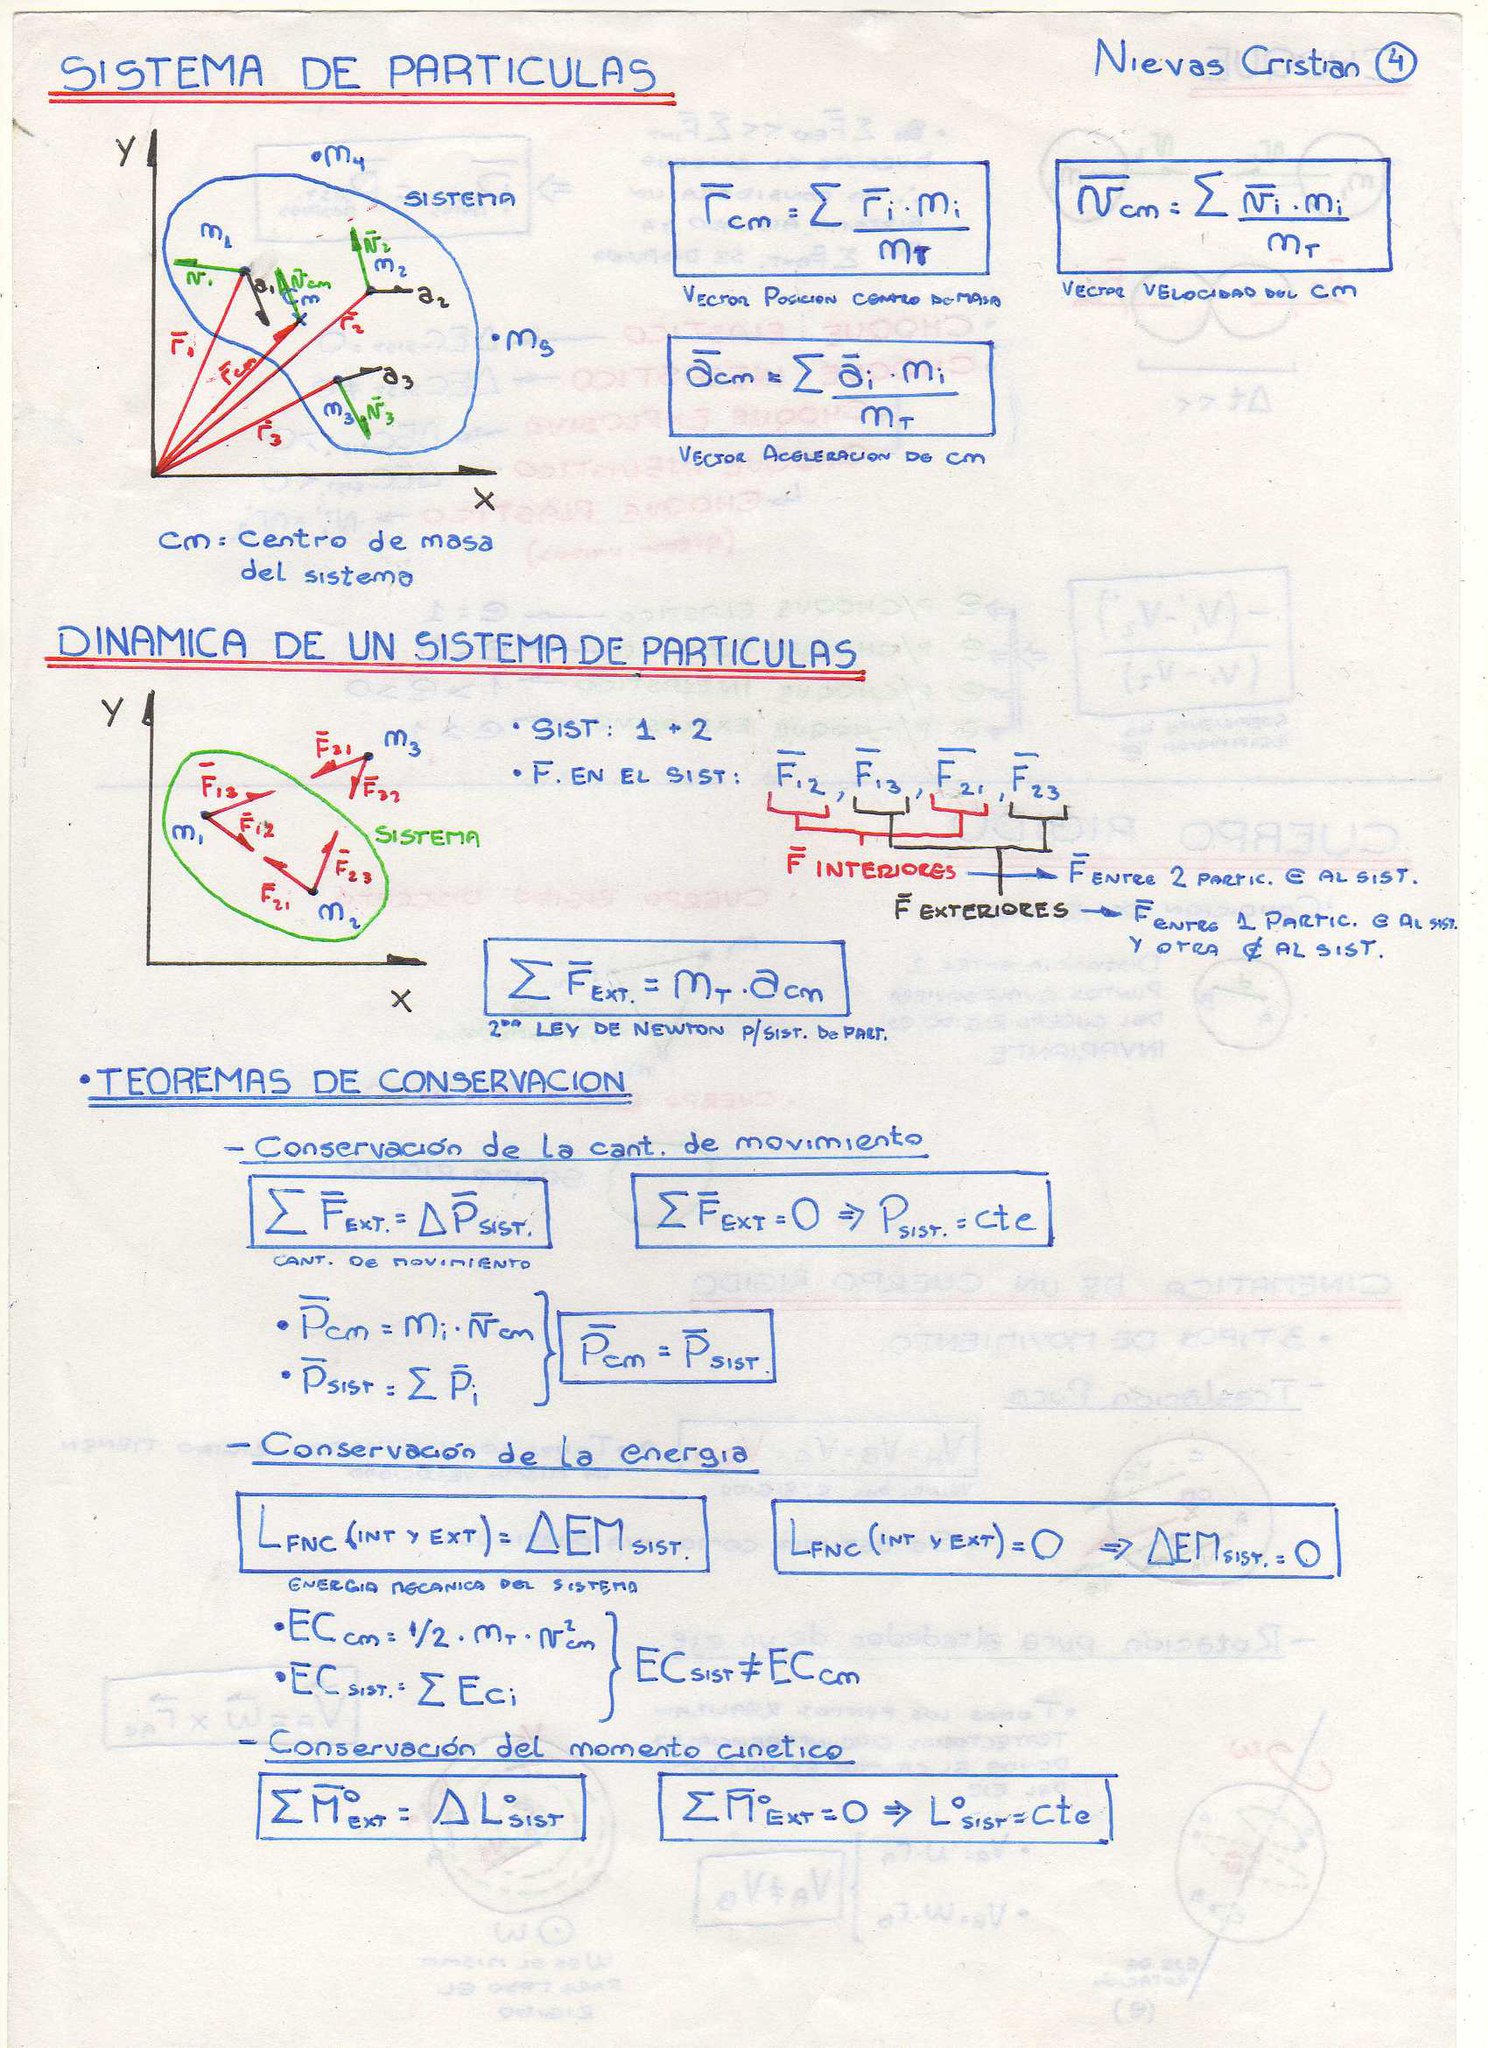 SISTEMA DE PARTICULAS
Nievas Cristian 4
Y
m4
SISTEMA
m1
v̄1
a1
v̄cm
cm
v̄2
m2
a2
r̄1
r̄cm
r̄2
m5
a3
m3
v̄3
r̄3
X
cm = Centro de masa
del sistema
r̄cm = Σ r̄i . mi / mT
VECTOR POSICION CENTRO DE MASA
v̄cm = Σ v̄i . mi / mT
VECTOR VELOCIDAD DEL CM
ācm = Σ āi . mi / mT
VECTOR ACELERACION DE CM
DINAMICA DE UN SISTEMA DE PARTICULAS
Y
F̄31
m3
F̄32
F̄13
m1
F̄12
SISTEMA
F̄23
F̄21
m2
X
• SIST: 1 + 2
• F̄. EN EL SIST: F̄12, F̄13, F̄21, F̄23
F̄ INTERIORES → F̄ ENTRE 2 PARTIC. ∈ AL SIST.
F̄ EXTERIORES → F̄ ENTRE 1 PARTIC. ∈ AL SIST.
Y OTRA ∉ AL SIST.
Σ F̄EXT. = mT . acm
2DA LEY DE NEWTON P/SIST. DE PART.
• TEOREMAS DE CONSERVACION
- Conservación de la cant. de movimiento
Σ F̄EXT. = Δ P̄SIST.
CANT. DE MOVIMIENTO
Σ F̄EXT = 0 ⇒ PSIST. = cte
• P̄cm = mi . v̄cm
• P̄SIST = Σ P̄i
P̄cm = P̄SIST.
- Conservación de la energia
LFNC (INT Y EXT) = ΔEMSIST.
ENERGIA MECANICA DEL SISTEMA
LFNC (INT Y EXT) = 0 ⇒ ΔEMSIST. = 0
• ECcm = 1/2 . mT . v²cm
• ECSIST. = Σ Eci
ECSIST ≠ ECcm
- Conservación del momento cinetico
Σ M̄°EXT = Δ L°SIST
Σ M̄°EXT = 0 ⇒ L°SIST = cte